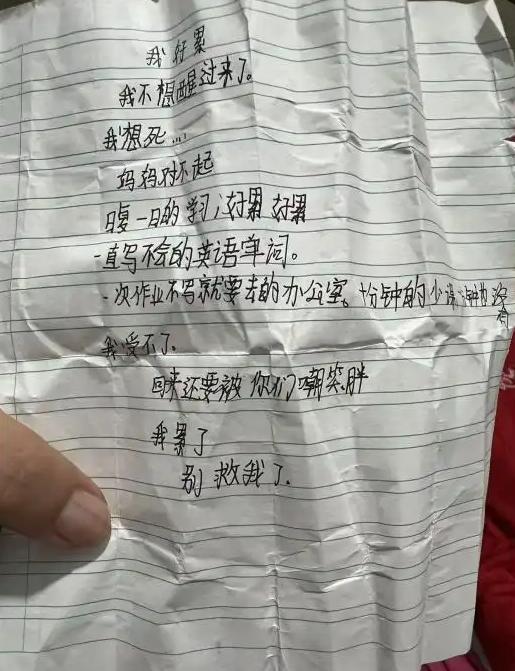 我好累
我不想醒过来了。
我想死...
妈妈对不起
日复一日的学习，好累 好累
一直写不会的英语单词。
一次作业不写就要去的办公室。十分钟的少 没有
我受不了.
回来还要被 你们嘲笑胖
我累了
别 救我了.